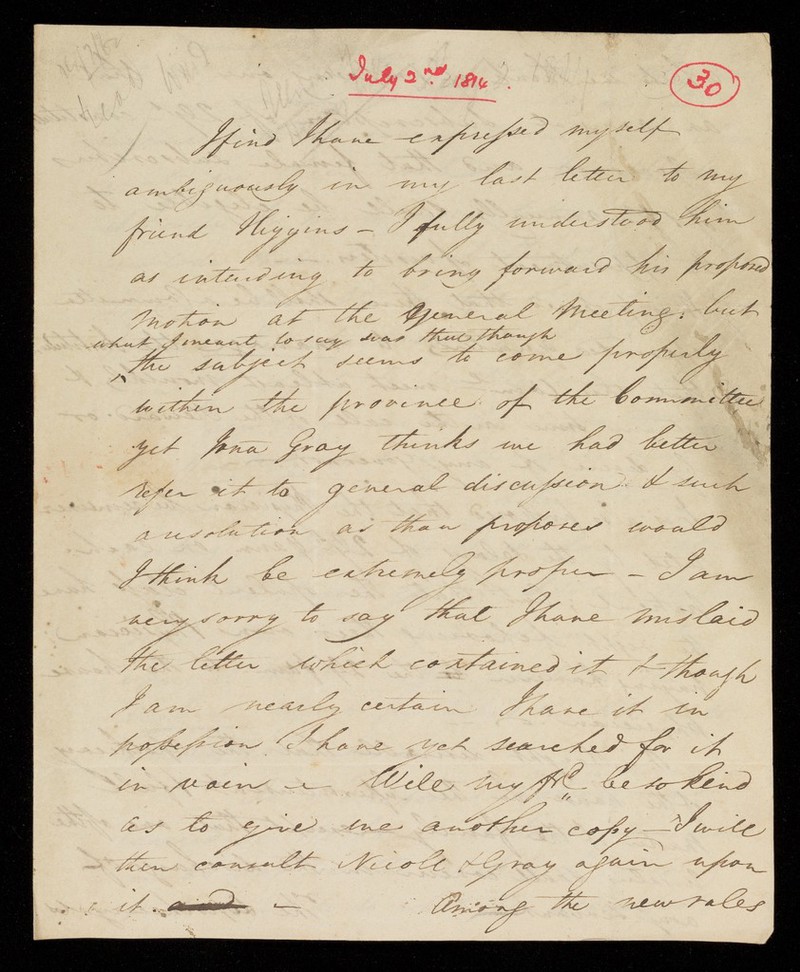 July 2nd. 1814.
30
I find I have expressed myself
ambiguously in my last letter to my
friend Higgins - I fully understood him
as intending to bring forward his proposed
motion at the General Meeting. but
what I meant to say was that though
the subject seems to come properly
within the province of the Committee
yet Jona Gray thinks we had better
refer it to general discussion. & such
a resolution as thou proposes would
I think be extremely proper - I am
very sorry to say that I have mislaid
the letter which contained it & though
I am nearly certain I have it in
possession I have yet searched for it
in vain - Will my frd be so kind
as to give me another copy - I will
then consult Nicoll & Gray again upon
it. and - Among the new rules